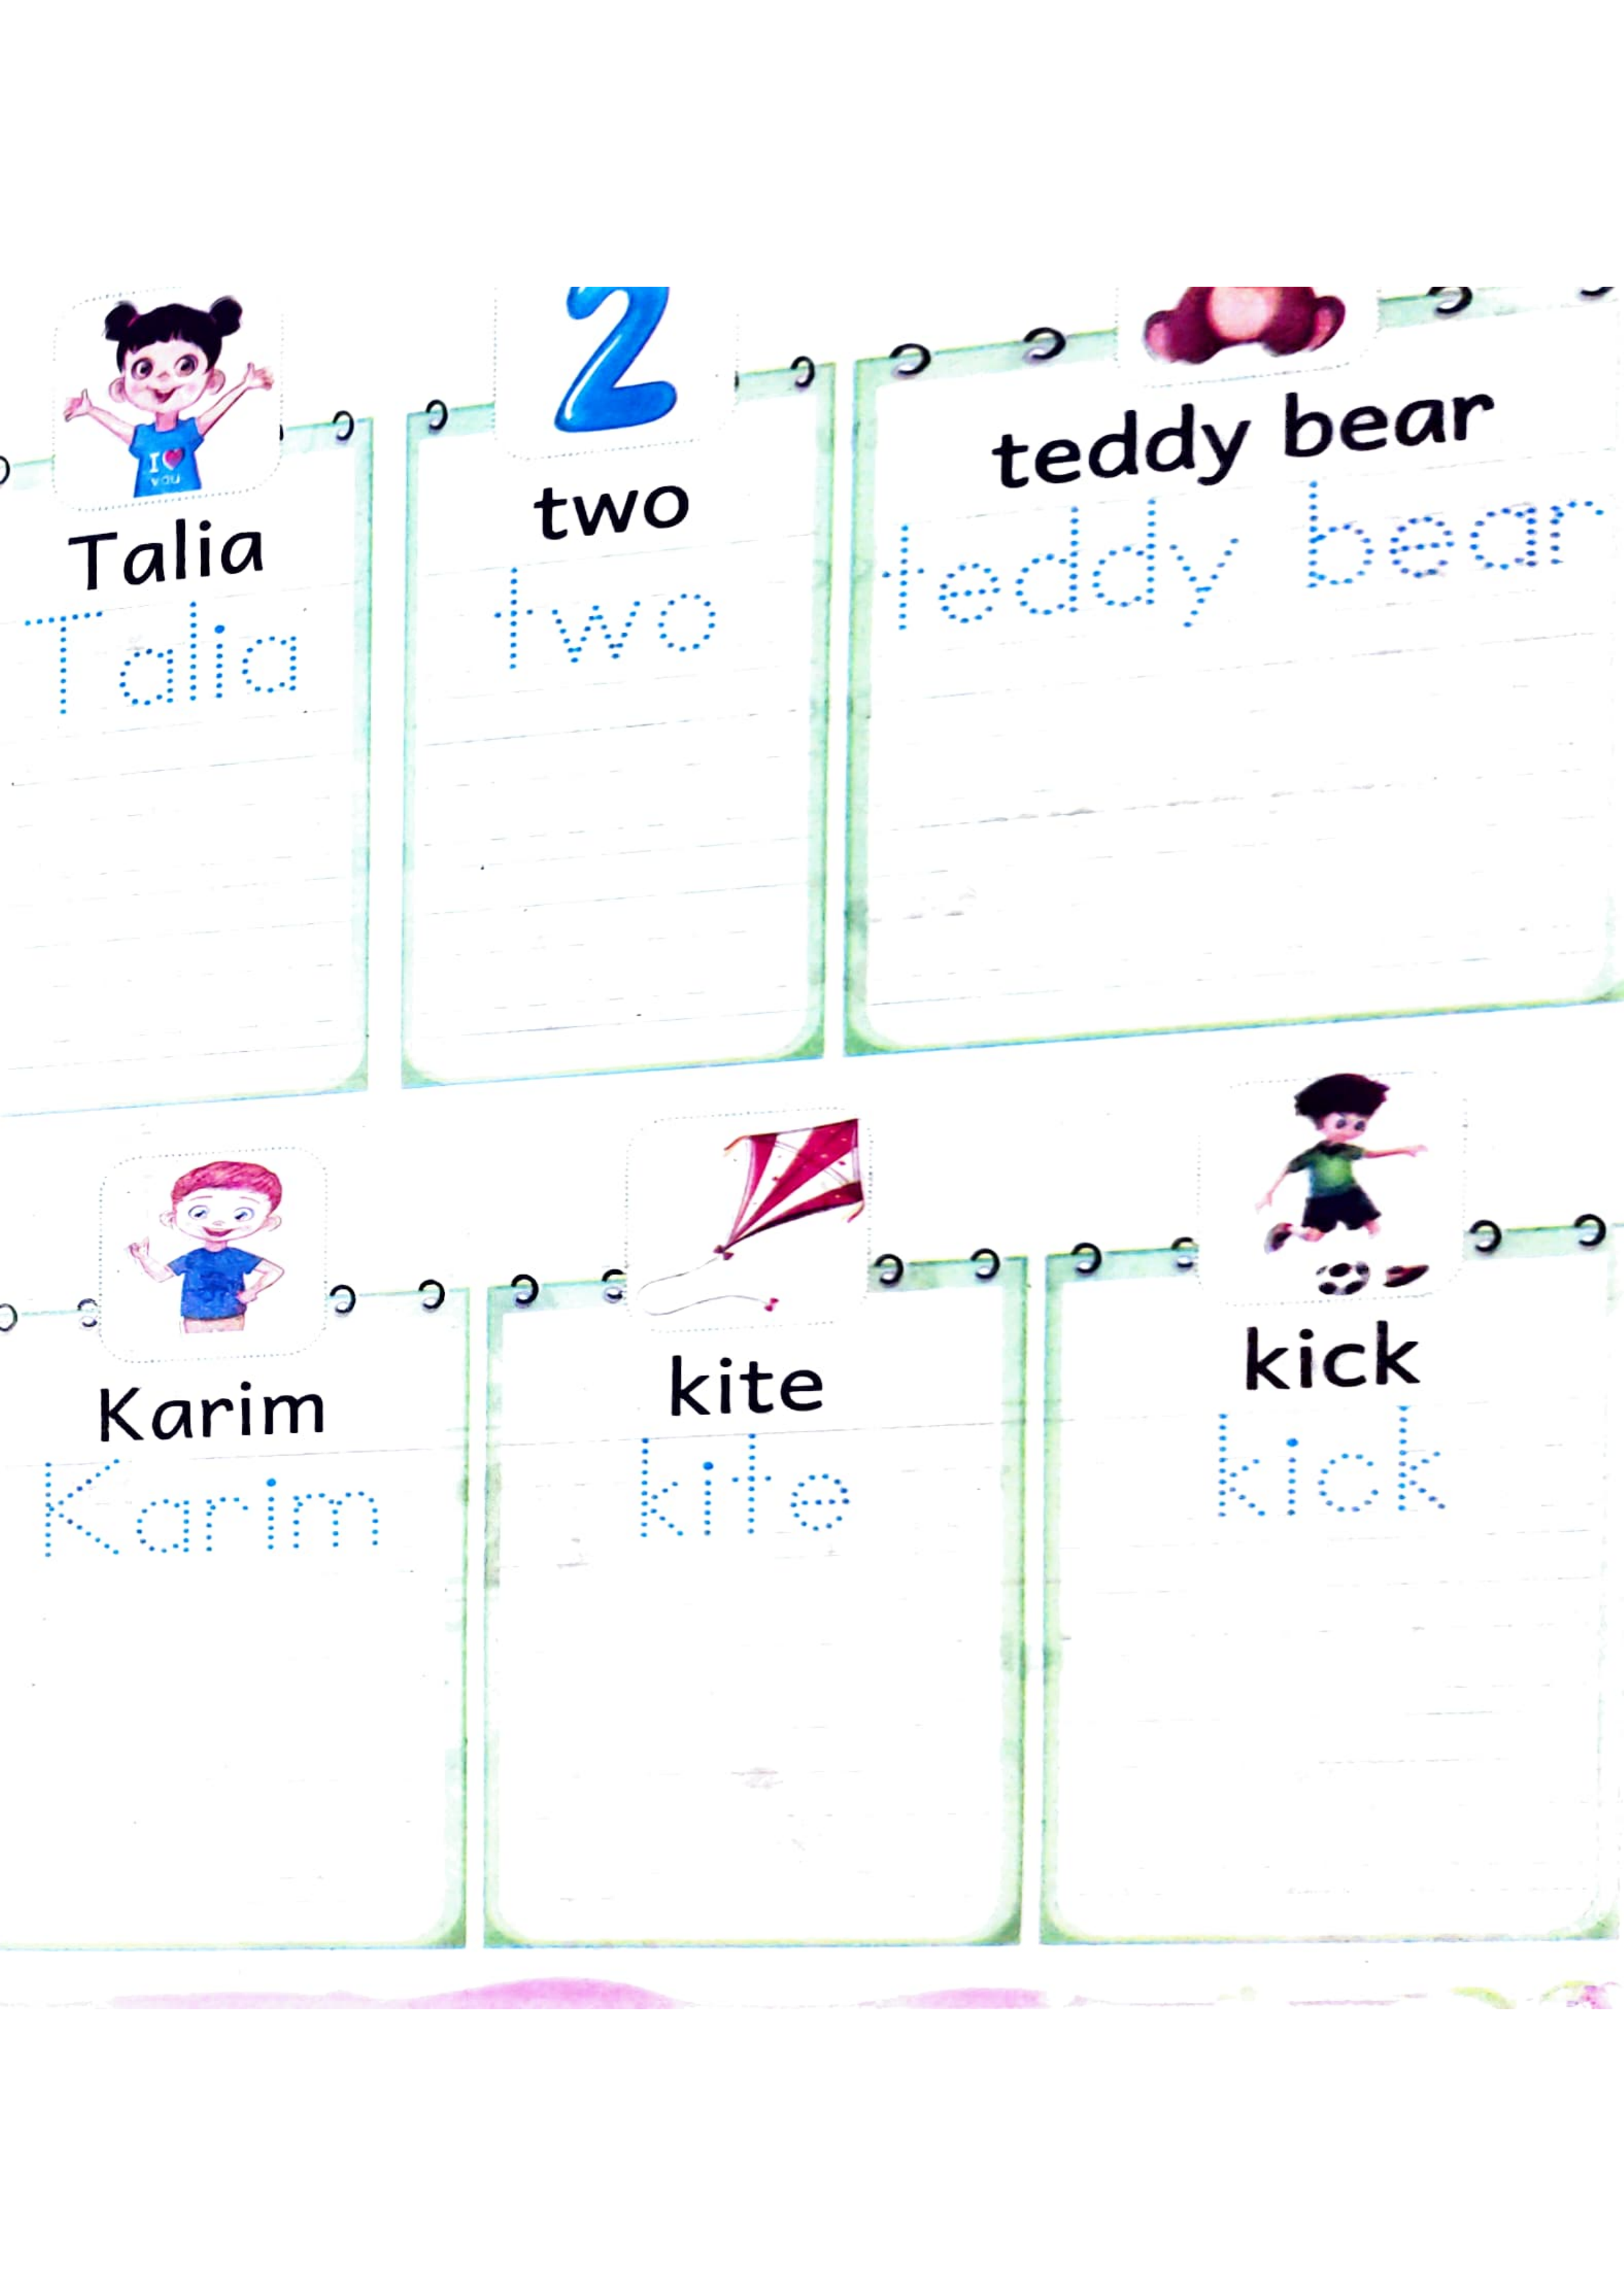 I ♥ you
2
Talia
Talia
two
two
teddy bear
teddy bear
Karim
Karim
kite
kite
kick
kick